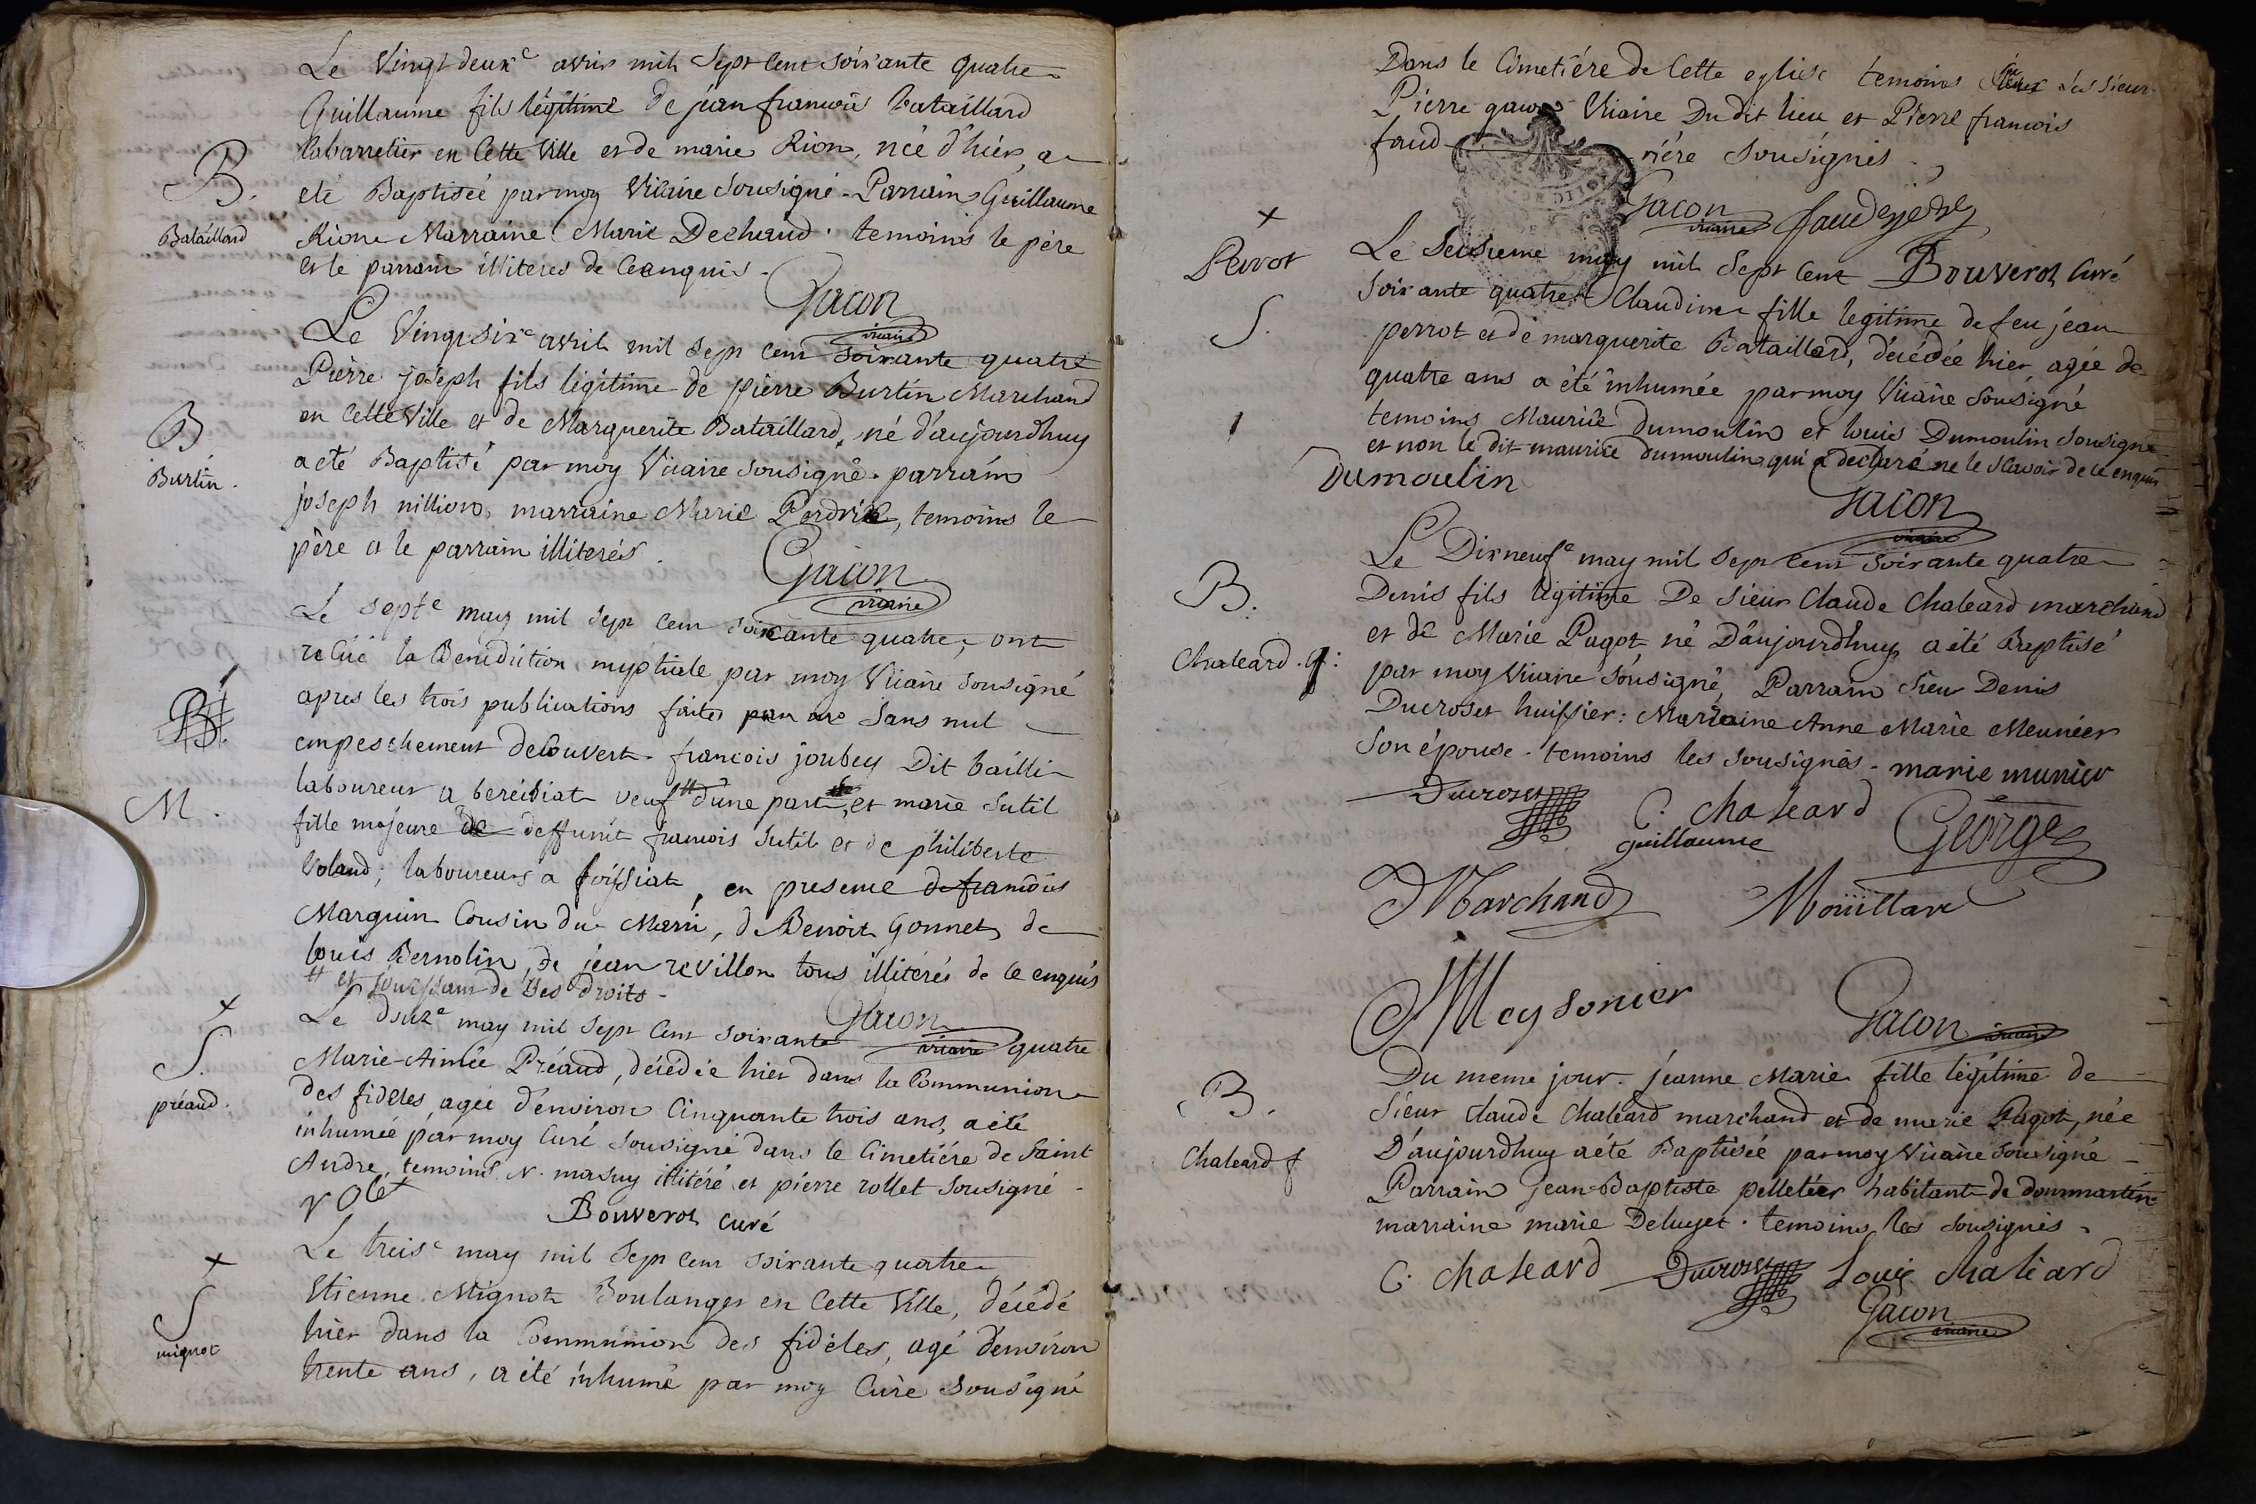 Le Vingt deuxe avril mil Sept Cent Soixante quatre
Guillaume fils légitime de jean francois bataillard
Cabarretier en Cette Ville et de marie Rion, née d'hier, a
B.
été Baptiseé par moy Vicaire Sousigné. Parrain Guillaume
Bataillard
Rion Marraine Marie Dechaud. temoins le père
et le parrain illiteres de Ce enquis.
Gacon
vicaire
Le Vingt sixe avril mil Sept Cent Soixante quatre
Pierre joseph fils légitime de pierre Burtin Marchand
en Cette Ville et de Marguerite Bataillard, né d'aujourdhuy
B
a été Baptisé par moy Vicaire Sousigné. parrain
Burtin.
joseph nillion, marraine Marie Perdrix, temoins le
père et le parrain illiterés.
Gacon
vicaire
Le septe may mil Sept Cent Soixante quatre, ont
reçue la Benediction nuptiale par moy Vicaire Sousigné
apres les trois publications faites Sans nul
B.
empeschement decouvert. francois joubey Dit bailli
laboureur a bereisiat veuf # d'une part, et marie Sutil
M.
fille majeure de deffunt francois Sutil et de philiberte
Voland; laboureurs a foissiat, en presence de francois
Marguin Cousin du Marié, de Benoit Gonnet, de
louis Bernolin, de jean revillon tous illitérés de ce enquis
# et jouissant de ses droits.
Gacon
vicaire
+
Le douze may mil Sept Cent Soixante quatre
S.
Marie-Aimée Préaud, décédée hier dans la Communion
préaud.
des fideles, agée d'environ Cinquante trois ans, a été
inhumée par moy Curé Sousigné dans le Cimetiére de Saint
Andre, temoins N. masuy illitéré et pierre rollet Sousigné.
rolet
Bouverot curé
+
Le treise may mil Sept Cent Soixante quatre
S
Etienne Mignot Boulanger en Cette Ville, décédé
mignot
hier dans la Communion des fidéles, agé d'environ
trente ans, a été inhumé par moy Curé Sousigné
Dans le Cimetiére de Cette eglise temoins les Sieur
Pierre gacon Vicaire Du dit lieu et Pierre francois
faud riére Sousignés.
Gacon
vicaire
+
Perrot
Le Seisieme may mil Sept Cent Bouverot Curé
Soixante quatre Claudine fille legitime de feu jean
S.
perrot et de marguerite Bataillard, décédée hier agée de
quatre ans a été inhumée par moy Vicaire Sousigné
1
temoins Maurice Dumoulin et louis Dumoulin Sousigné
et non le dit maurice Dumoulin qui a declaré ne le Scavoir de ce enquis
Dumoulin
Gacon
vicaire
Le Dixneufe may mil Sept Cent Soixante quatre
B.
Denis fils légitime De Sieur Claude Chaleard marchand
et de Marie Pagot, né D'aujourdhuy a été Baptisé
Chaleard. g:
par moy Vicaire Sousigné, Parrain Sieur Denis
Ducroset huissier: Marraine Anne Marie Meunier
Son épouse. temoins les Sousignés. marie munier
Ducroset
C. chaleard
guillaume
George
Marchand
Moüillard
Meysonier
Gacon vicaire
Du meme jour. jeanne Marie fille légitime de
B.
Sieur claude Chaleard marchand et de marie Pagot, née
Chaleard f
D'aujourdhuy a été Baptisée par moy Vicaire Sousigné
Parrain Jean-Baptiste pelletier habitant de dommartin
marraine marie Deluget. temoins les Sousignés.
C. chaleard Ducroset Louis Chaleard
Gacon
vicaire